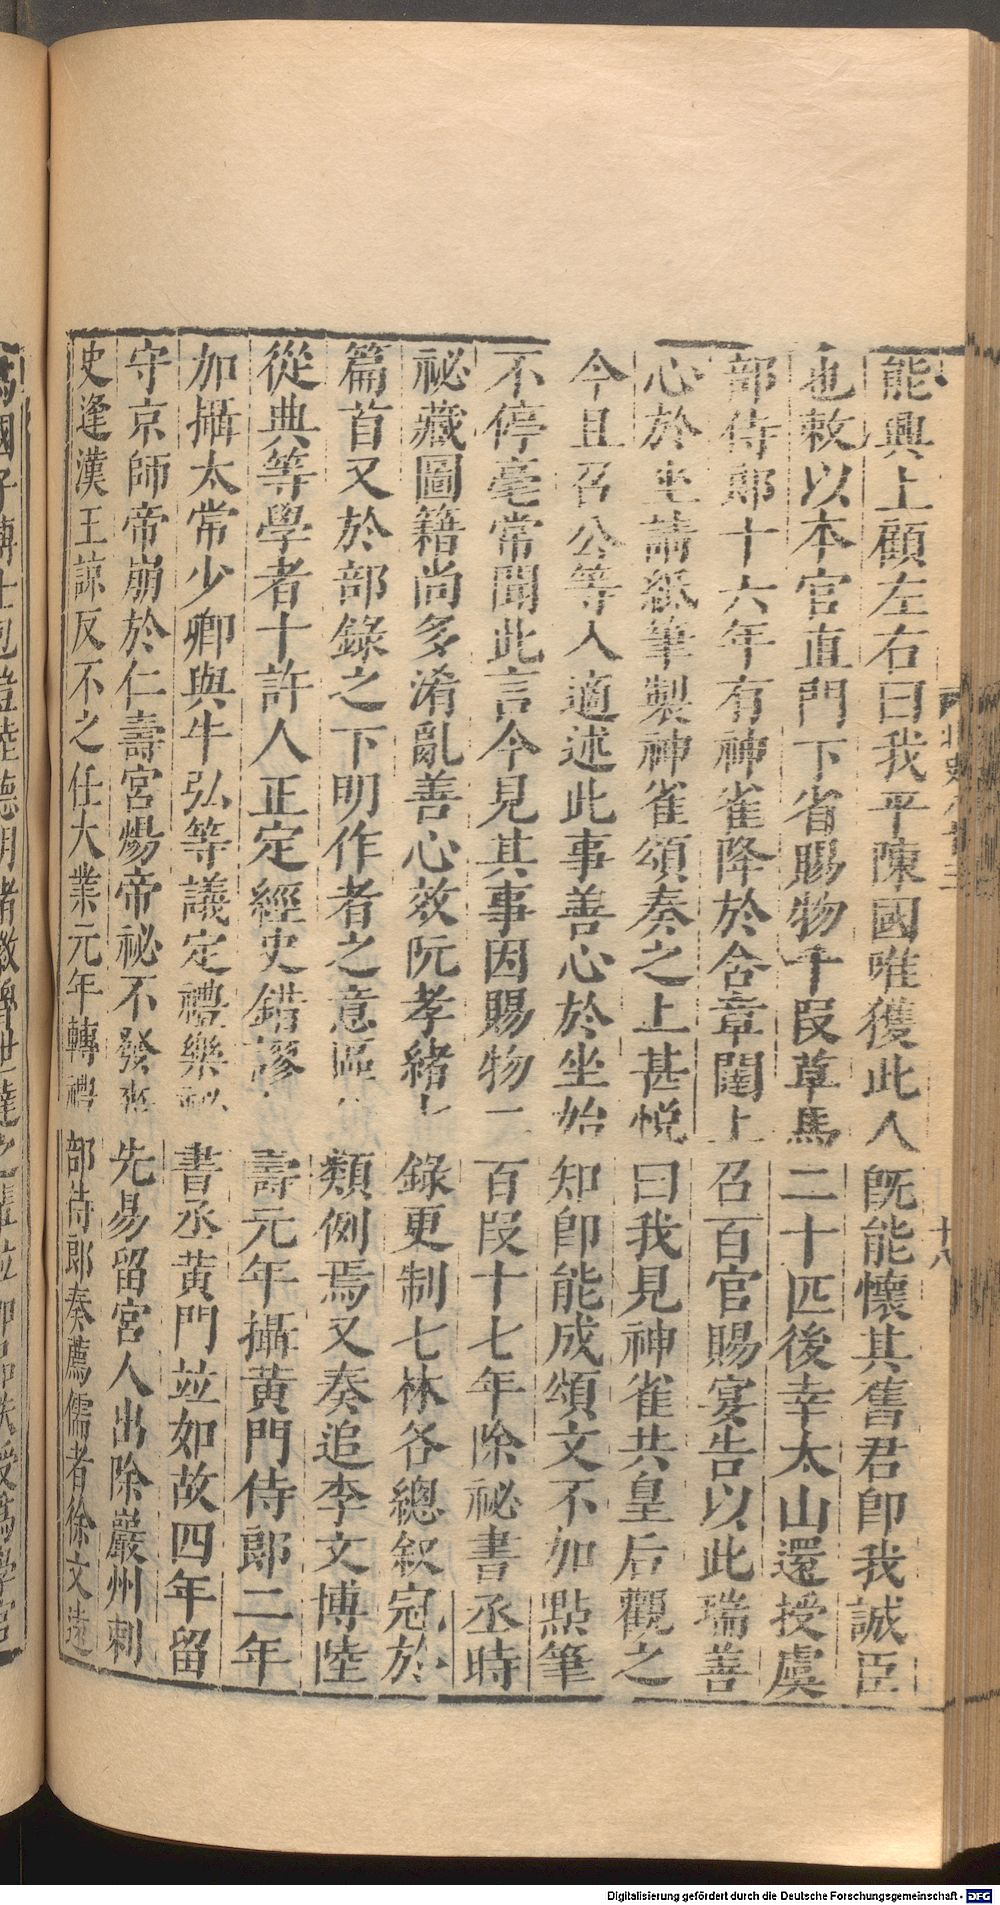 能興上顧左右曰我平陳國唯獲此人既能懷其舊君即我誠臣
也敕以本官直門下省賜物千段草馬二十匹後幸太山還授虞
部侍郎十六年有神雀降於含章闥上召百官賜宴告以此瑞善
心於坐請紙筆製神雀頌奏之上甚悅曰我見神雀共皇后觀之
今且召公等入適述此事善心於坐始知即能成頌文不加點筆
不停毫常聞此言今見其事因賜物二百段十七年除祕書丞時
祕藏圖籍尚多淆亂善心效阮孝緒七錄更制七林各總叙冠於
篇首又於部錄之下明作者之意區類例焉又奏追李文博陸
從典等學者十許人正定經史錯謬壽元年攝黄門侍郎二年
加攝太常少卿與牛弘等議定禮樂祕書丞黄門竝如故四年留
守京師帝崩於仁壽宮煬帝祕不發喪先易留宮人出除巖州刺
史逢漢王諒反不之任大業元年轉禮部侍郎奏薦儒者徐文遠
爲國子博士包愷陸德明褚徽魯世達之輩竝加品秩授爲學官
十八
Digitalisierung gefördert durch die Deutsche Forschungsgemeinschaft - DFG